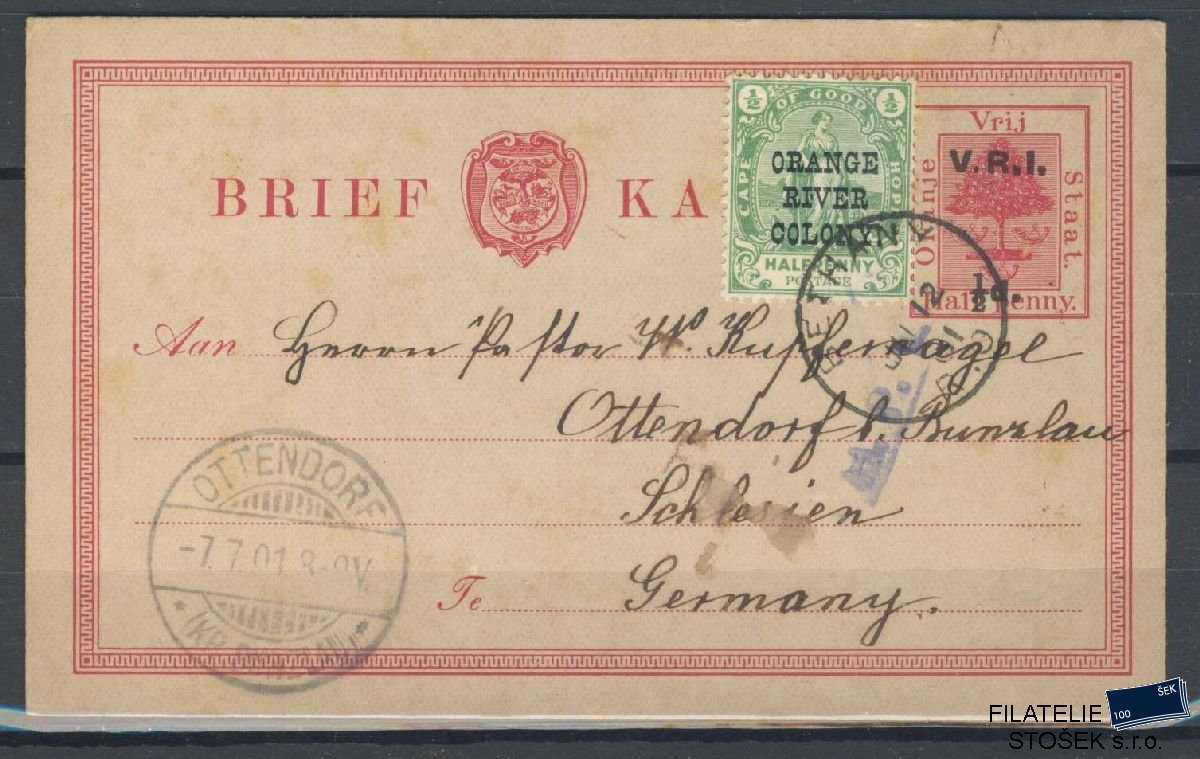 BRIEF KA
½ OF GOOD ½
CAPE
HOPE
ORANGE
RIVER
COLONY
HALFPENNY
POSTAGE
Vrij
Oranje
Staat.
V.R.I.
½d.
Half Penny.
BETHANY
12
Aan Herrn Pastor W. Kupfernagel
Ottendorf b. Bunzlau
Schlesien
Te Germany.
OTTENDORF
-7.7.01.8-9V.
* (KR. BUNZLAU) *
FILATELIE
STOŠEK s.r.o.
100 ŠEK